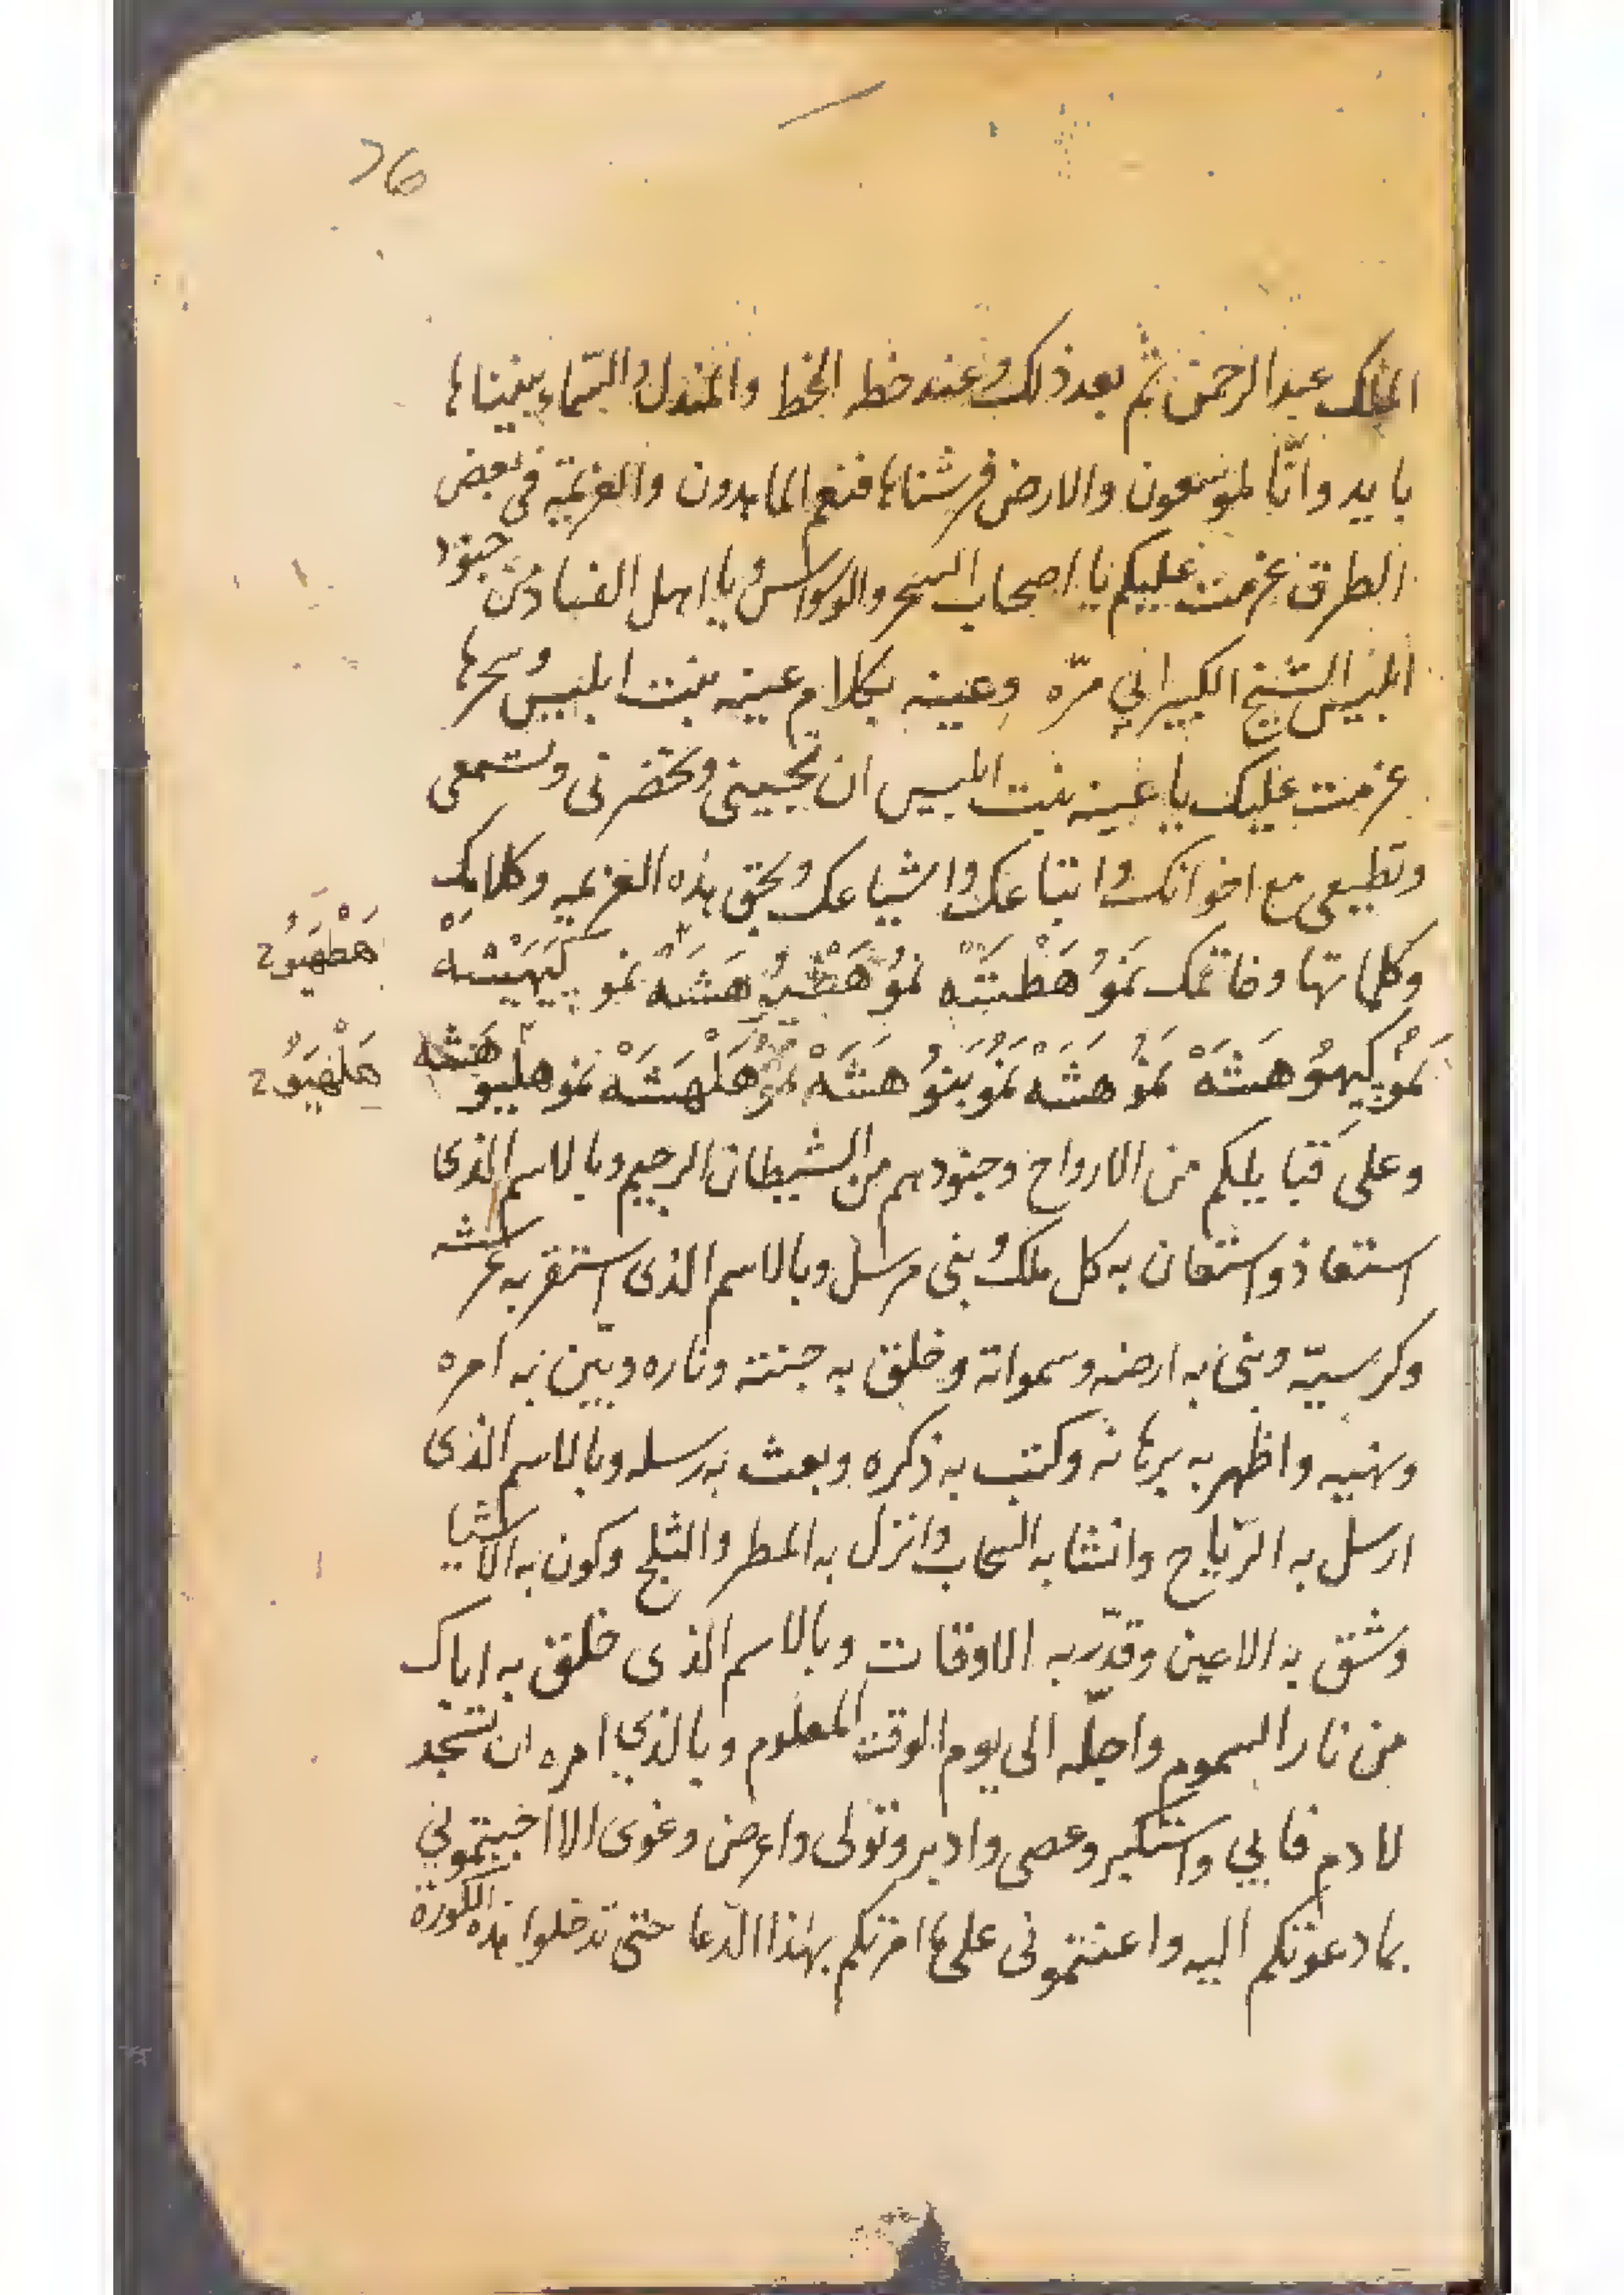 76
الملك عبد الرحمن ثم بعد ذلك وعند خط الخط والمندل والسّماء بنيناها
بايد وانّا لموسعون والارض فرشناها فنعم الماهدون والعزيمة في بعض
الطرق عزمت عليكم يا اصحاب السحر والوسواس ويا اهل الفساد من جنود
ابليس الشيخ الكبير ابي مرّه وعينه بكلام عينه بنت ابليس وسحرها
عزمت عليك يا عينه بنت ابليس ان تجيبني وتحضرني وتسمعي
وتطيعي مع اخوانك واتباعك واشياعك وبحق هذه العزيمه وكلامك
وكلماتها وخاتمك نمو هَشَه نمو
هَطْهَيوُ 2
نمو كيهو هَشَهْ نمو هشه نمو بنو هَشَهْ نمو هَلْهَشَهْ نمو هليو هشه
هَلْهَيوُ 2
وعلى قبايلكم من الارواح وجنودهم من الشيطان الرجيم وبالاسم الذى
استعاذ واستعان به كل ملك ونبى مرسل وبالاسم الذى استقر به عرشه
وكرسيّه وبنى به ارضه وسمواته وخلق به جنته وناره وبيّن به امره
ونهيه واظهر به برهانه وكتب به ذكره وبعث به رسله وبالاسم الذى
ارسل به الرّياح وانشا به السحاب وانزل به المطر والثلج وكون به الاشيا
وشق به الاعين وقدّر به الاوقات وبالاسم الذى خلق به اباك
من نار السموم واجلّه الى يوم الوقت المعلوم وبالذي امره ان يسجد
لادم فابي واستكبر وعصى وادبر وتولى واعرض وغوى الا اجبتموني
بما دعوتكم اليه واعنتمونى على ما امرتكم بهذا الدّعا حتى تدخلوا هذه الكورة